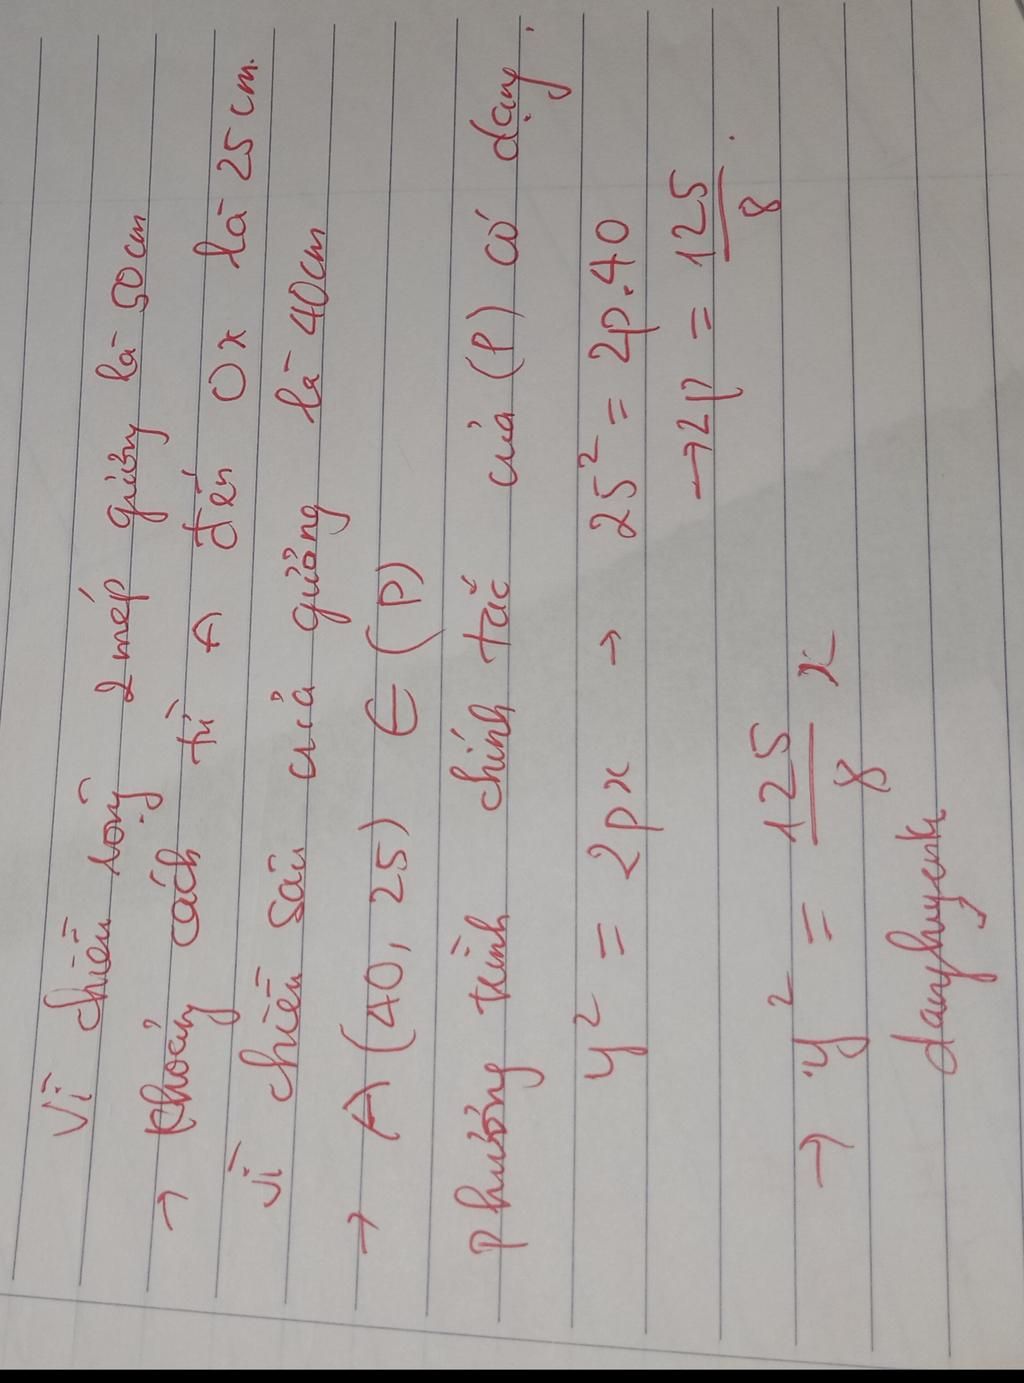 Vì chiều rộng 2 mép gương là 50cm
→ Khoảng cách từ A đến Ox là 25cm.
Vì chiều sâu của gương là 40cm
→ A (40, 25) ∈ (P)
Phương trình chính tắc của (P) có dạng.
y² = 2px → 25² = 2p.40
→ 2p = 125/8.
→ y² = 125/8 x
danghuyenk